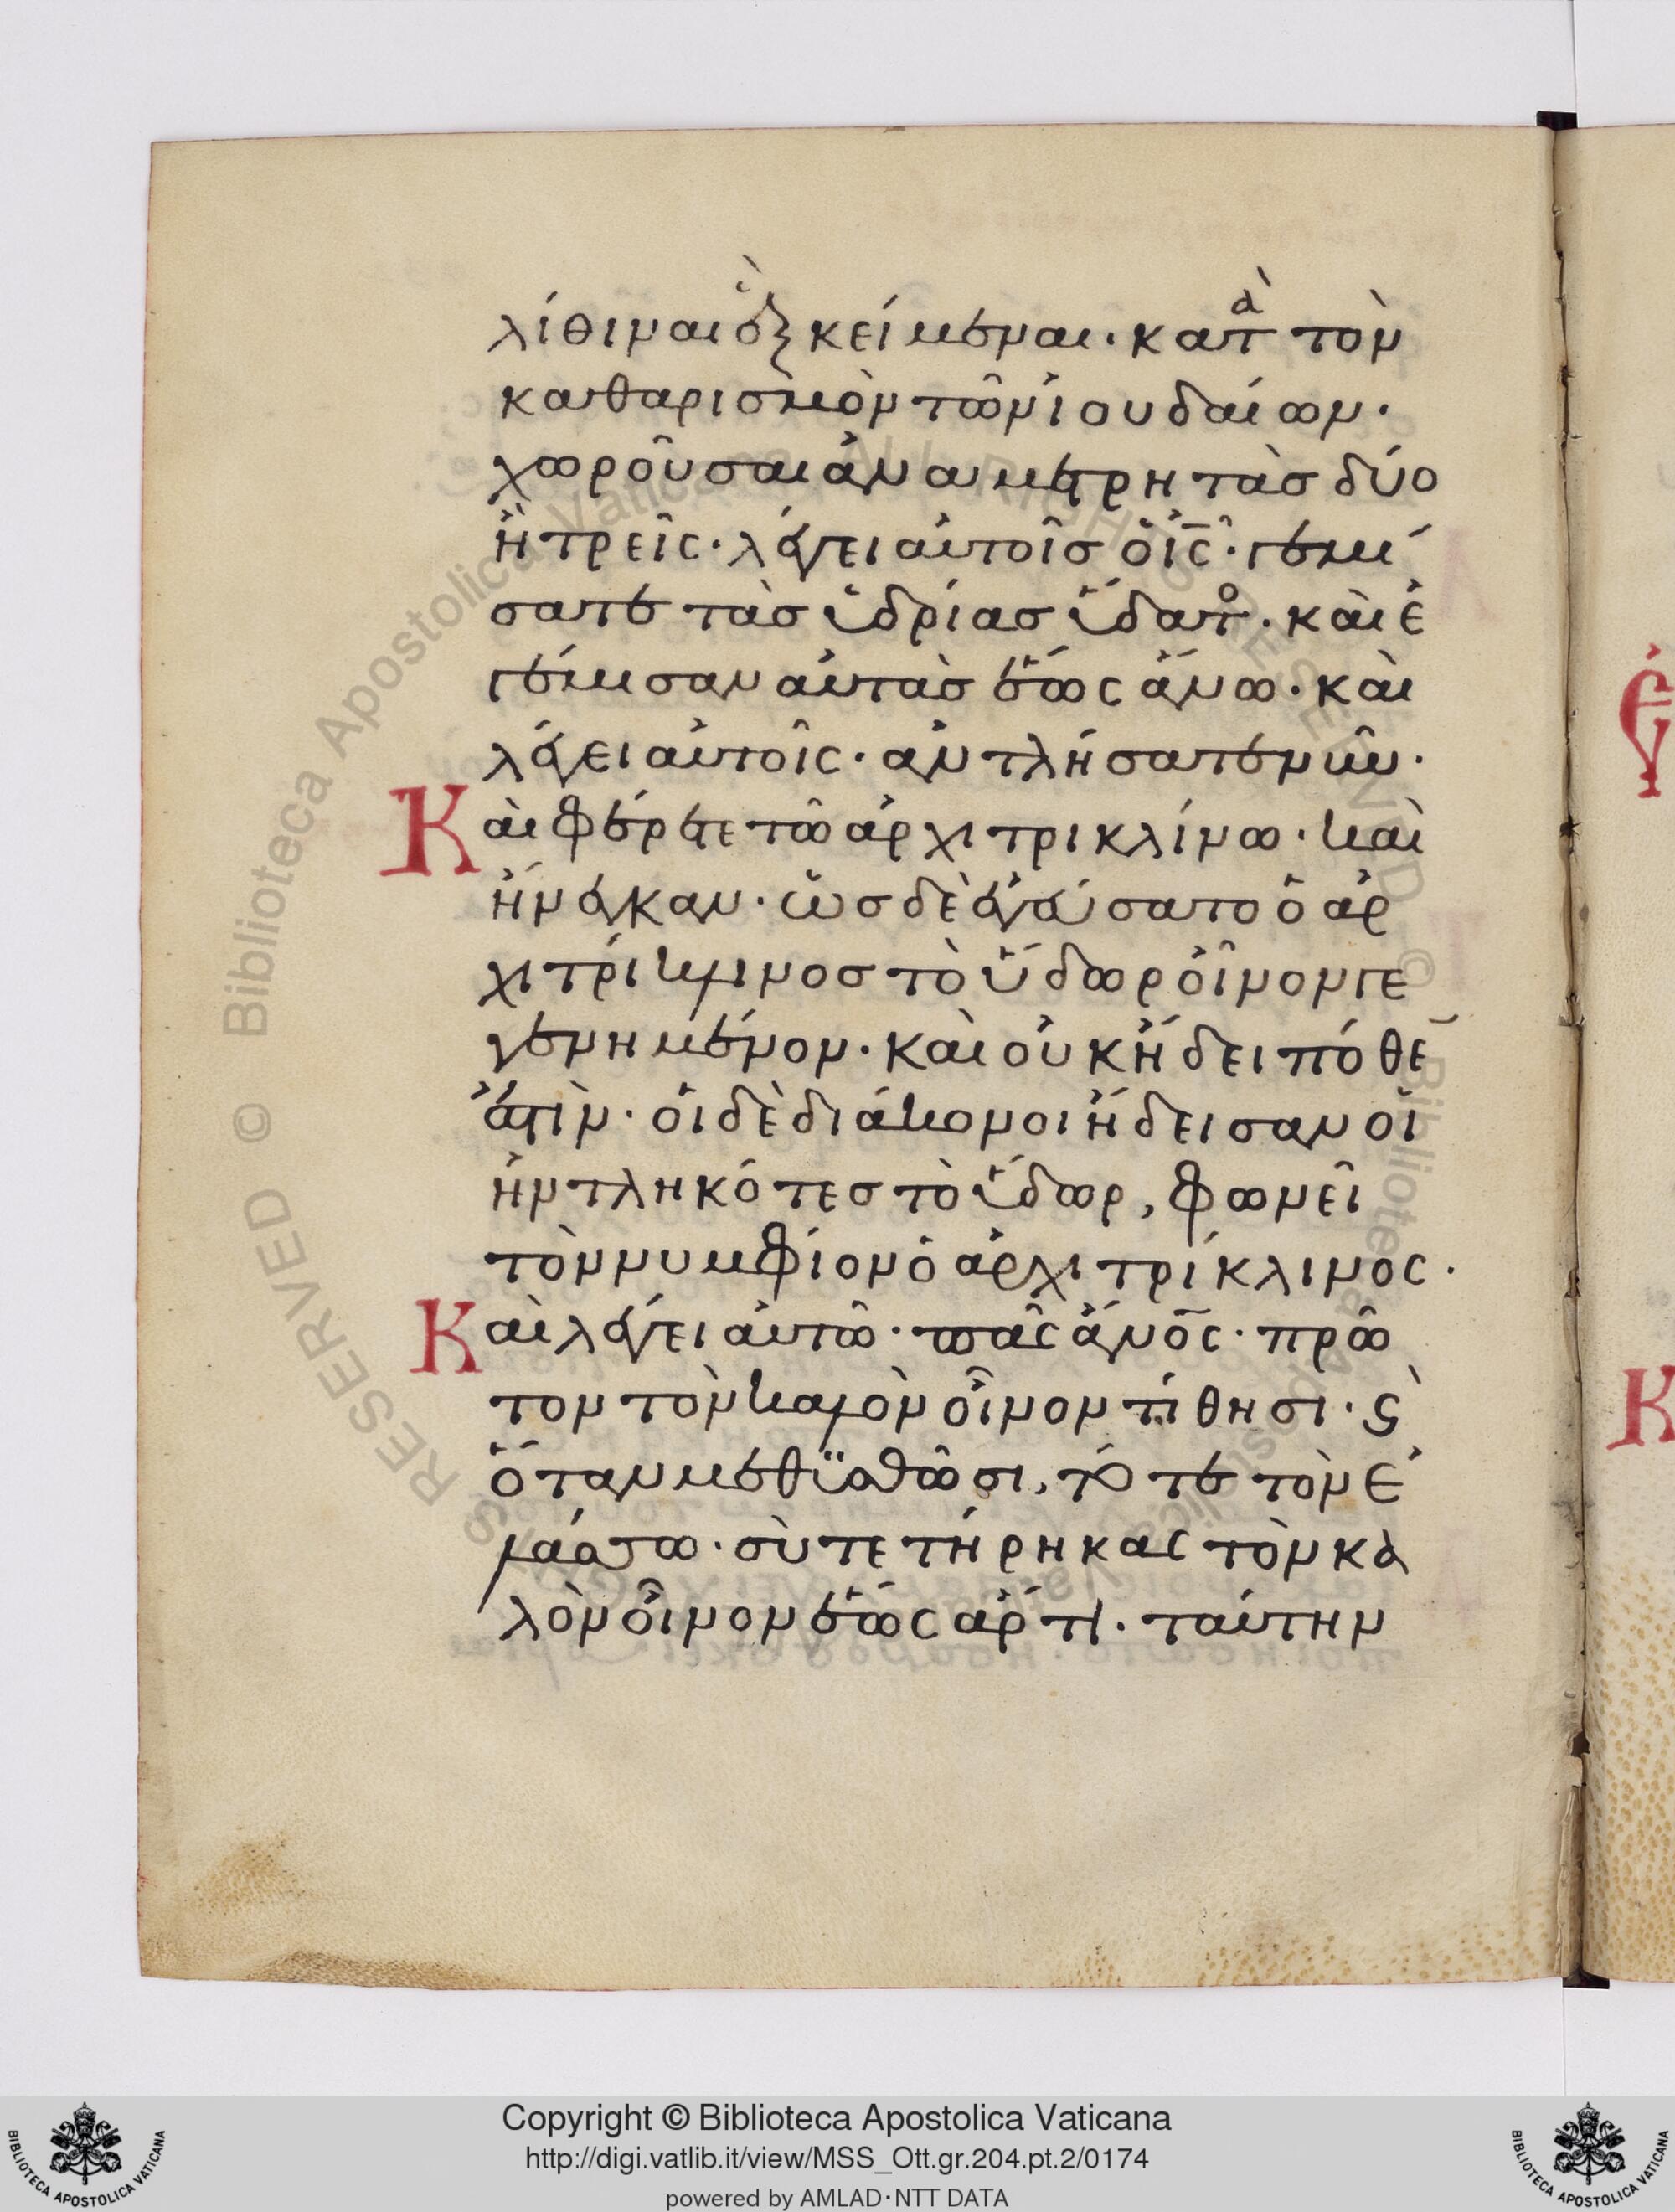 λίθιναι ἓξ κείμεναι· κατὰ τὸν
καθαρισμὸν τῶν ἰουδαίων·
χωροῦσαι ἀνα μετρητὰσ δύο
ἢ τρεῖς· λέγει αὐτοῖσ ὁ ἰς· γεμί
σατε τὰσ ὑδρίασ ὕδατο· καὶ ἐ
γέμισαν αὐτὰσ ἕως ἄνω· καὶ
λέγει αὐτοῖς· ἀντλήσατε νῦν·
Καὶ φέρετε τῶ ἀρχιτρικλίνω· καὶ
ἤνεγκαν· ὡσ δὲ ἐγεύσατο ὁ ἀρ
χιτρίκλινοσ τὸ ὕδωρ οἶνον γε
γενημένον· καὶ οὐκ ἤδει πόθε
ἐστὶν· οἱ δὲ διάκονοι ἤδεισαν οἱ
ἠντληκότεσ τὸ ὕδωρ, φωνεῖ
τὸν νυμφίον ὁ ἀρχιτρίκλινος·
Καὶ λέγει αὐτῶ· πᾶς ἄνος· πρῶ
τον τὸν καλὸν οἶνον τίθησι· ϛ
ὅταν μεθϋσθῶσι, τότε τὸν ἐ
λάσσω· σὺ τετήρηκας τὸν κα
λὸν οἶνον ἕως ἄρτι· ταύτην
Copyright © Biblioteca Apostolica Vaticana
http://digi.vatlib.it/view/MSS_Ott.gr.204.pt.2/0174
powered by AMLAD·NTT DATA